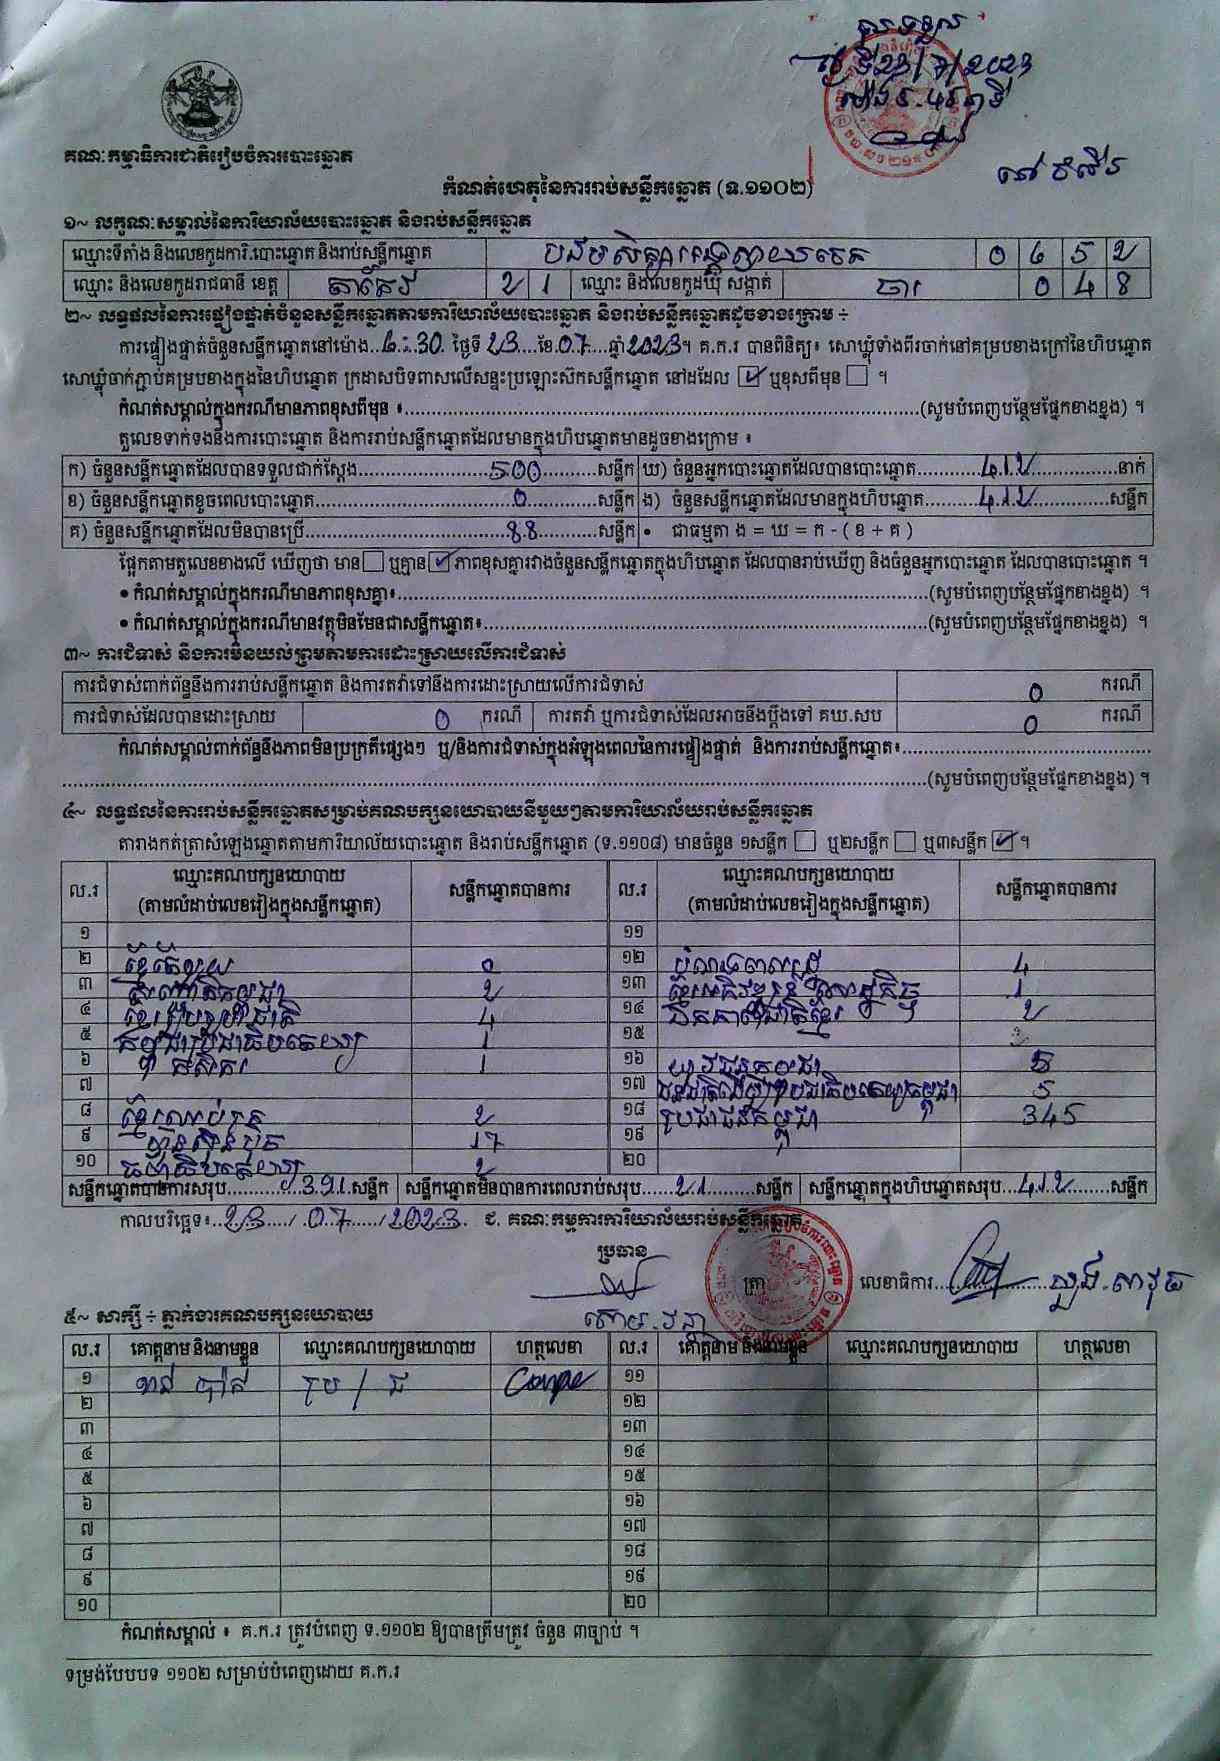 ថ្ងៃទី23/7/2023
គណៈកម្មាធិការជាតិរៀបចំការបោះឆ្នោត
កំណត់ហេតុនៃការរាប់សន្លឹកឆ្នោត (ទ.១១០២)
១~ លក្ខណៈសម្គាល់នៃការិយាល័យបោះឆ្នោត និងរាប់សន្លឹកឆ្នោត
ឈ្មោះទីតាំង និងលេខកូដការិ.បោះឆ្នោត និងរាប់សន្លឹកឆ្នោត 0 6 5 2
ឈ្មោះ និងលេខកូដរាជធានី ខេត្ត តាកែវ 2 1 ឈ្មោះ និងលេខកូដឃុំ សង្កាត់ 0 4 8
២~ លទ្ធផលនៃការផ្ទៀងផ្ទាត់ចំនួនសន្លឹកឆ្នោតតាមការិយាល័យបោះឆ្នោត និងរាប់សន្លឹកឆ្នោតដូចខាងក្រោម ÷
ការផ្ទៀងផ្ទាត់ចំនួនសន្លឹកឆ្នោតនៅម៉ោង ថ្ងៃទី 23 ខែ 07 ឆ្នាំ 2023។ គ.ក.រ បានពិនិត្យ៖ សោឃ្លុំទាំងពីរចាក់នៅគម្របខាងក្រៅនៃហិបឆ្នោត
សោឃ្លុំចាក់ភ្ជាប់គម្របខាងក្នុងនៃហិបឆ្នោត ក្រដាសបិទពាសលើសន្ទះប្រឡោះស៊កសន្លឹកឆ្នោត នៅដដែល ☑ ឬខុសពីមុន ☐ ។
កំណត់សម្គាល់ក្នុងករណីមានភាពខុសពីមុន ៖ (សូមបំពេញបន្ថែមផ្នែកខាងខ្នង) ។
តួលេខទាក់ទងនឹងការបោះឆ្នោត និងការរាប់សន្លឹកឆ្នោតដែលមានក្នុងហិបឆ្នោតមានដូចខាងក្រោម ៖
ក) ចំនួនសន្លឹកឆ្នោតដែលបានទទួលជាក់ស្តែង 500 សន្លឹក ឃ) ចំនួនអ្នកបោះឆ្នោតដែលបានបោះឆ្នោត 412 នាក់
ខ) ចំនួនសន្លឹកឆ្នោតខូចពេលបោះឆ្នោត 0 សន្លឹក ង) ចំនួនសន្លឹកឆ្នោតដែលមានក្នុងហិបឆ្នោត 412 សន្លឹក
គ) ចំនួនសន្លឹកឆ្នោតដែលមិនបានប្រើ 88 សន្លឹក • ជាធម្មតា ង = ឃ = ក - ( ខ + គ )
ផ្អែកតាមតួលេខខាងលើ ឃើញថា មាន ☐ ឬគ្មាន ☑ ភាពខុសគ្នារវាងចំនួនសន្លឹកឆ្នោតក្នុងហិបឆ្នោត ដែលបានរាប់ឃើញ និងចំនួនអ្នកបោះឆ្នោត ដែលបានបោះឆ្នោត ។
• កំណត់សម្គាល់ក្នុងករណីមានភាពខុសគ្នា៖ (សូមបំពេញបន្ថែមផ្នែកខាងខ្នង) ។
• កំណត់សម្គាល់ក្នុងករណីមានវត្ថុមិនមែនជាសន្លឹកឆ្នោត៖ (សូមបំពេញបន្ថែមផ្នែកខាងខ្នង) ។
៣~ ការជំទាស់ និងការមិនយល់ព្រមតាមការដោះស្រាយលើការជំទាស់
ការជំទាស់ពាក់ព័ន្ធនឹងការរាប់សន្លឹកឆ្នោត និងការតវ៉ាទៅនឹងការដោះស្រាយលើការជំទាស់ 0 ករណី
ការជំទាស់ដែលបានដោះស្រាយ 0 ករណី ការតវ៉ា ឬការជំទាស់ដែលអាចនឹងប្តឹងទៅ គឃ.សប 0 ករណី
កំណត់សម្គាល់ពាក់ព័ន្ធនឹងភាពមិនប្រក្រតីផ្សេងៗ ឬ/និងការជំទាស់ក្នុងអំឡុងពេលនៃការផ្ទៀងផ្ទាត់ និងការរាប់សន្លឹកឆ្នោត៖
(សូមបំពេញបន្ថែមផ្នែកខាងខ្នង) ។
៤~ លទ្ធផលនៃការរាប់សន្លឹកឆ្នោតសម្រាប់គណបក្សនយោបាយនីមួយៗតាមការិយាល័យរាប់សន្លឹកឆ្នោត
តារាងកត់ត្រាសំឡេងឆ្នោតតាមការិយាល័យបោះឆ្នោត និងរាប់សន្លឹកឆ្នោត (ទ.១១០៨) មានចំនួន ១សន្លឹក ☐ ឬ២សន្លឹក ☐ ឬ៣សន្លឹក ☑ ។
ល.រ ឈ្មោះគណបក្សនយោបាយ (តាមលំដាប់លេខរៀងក្នុងសន្លឹកឆ្នោត) សន្លឹកឆ្នោតបានការ ល.រ ឈ្មោះគណបក្សនយោបាយ (តាមលំដាប់លេខរៀងក្នុងសន្លឹកឆ្នោត) សន្លឹកឆ្នោតបានការ
១ ១១
២ ១២ 4
៣ 2 ១៣ 1
៤ 4 ១៤ ឯកភាពជាតិខ្មែរ 2
៥ 1 ១៥
៦ 1 ១៦ យុវជនកម្ពុជា
៧ ១៧ 5
៨ 2 ១៨ ប្រជាជនកម្ពុជា 345
៩ ហ្វ៊ុនស៊ិនប៉ិច 17 ១៩
១០ 2 ២០
សន្លឹកឆ្នោតបានការសរុប 391 សន្លឹក សន្លឹកឆ្នោតមិនបានការពេលរាប់សរុប 21 សន្លឹក សន្លឹកឆ្នោតក្នុងហិបឆ្នោតសរុប 412 សន្លឹក
កាលបរិច្ឆេទ៖ 23/07/2023. ជ. គណៈកម្មការការិយាល័យរាប់សន្លឹកឆ្នោត
ប្រធាន
ត្រា លេខាធិការ
៥~ សាក្សី ÷ ភ្នាក់ងារគណបក្សនយោបាយ
ល.រ គោត្តនាម និងនាមខ្លួន ឈ្មោះគណបក្សនយោបាយ ហត្ថលេខា ល.រ គោត្តនាម និងនាមខ្លួន ឈ្មោះគណបក្សនយោបាយ ហត្ថលេខា
១ ១១
២ ១២
៣ ១៣
៤ ១៤
៥ ១៥
៦ ១៦
៧ ១៧
៨ ១៨
៩ ១៩
១០ ២០
កំណត់សម្គាល់ ៖ គ.ក.រ ត្រូវបំពេញ ទ.១១០២ ឱ្យបានត្រឹមត្រូវ ចំនួន ៣ច្បាប់ ។
ទម្រង់បែបបទ ១១០២ សម្រាប់បំពេញដោយ គ.ក.រ